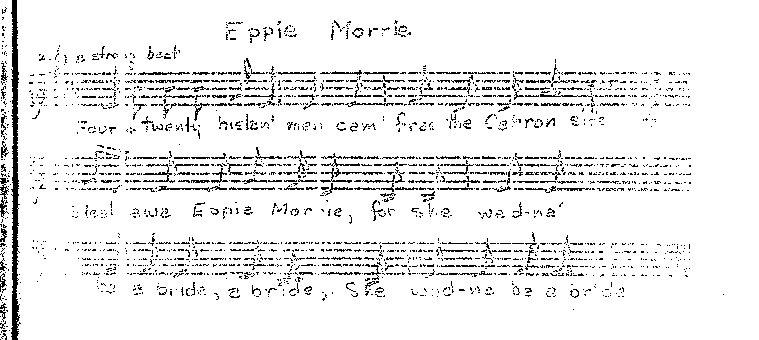 Eppie Morrie
a strong beat
Four + twenty hielan' men cam' frae the Carron side to
steal awa Eppie Morrie, for she wad-na'
be a bride, a bride, She wad-na be a bride